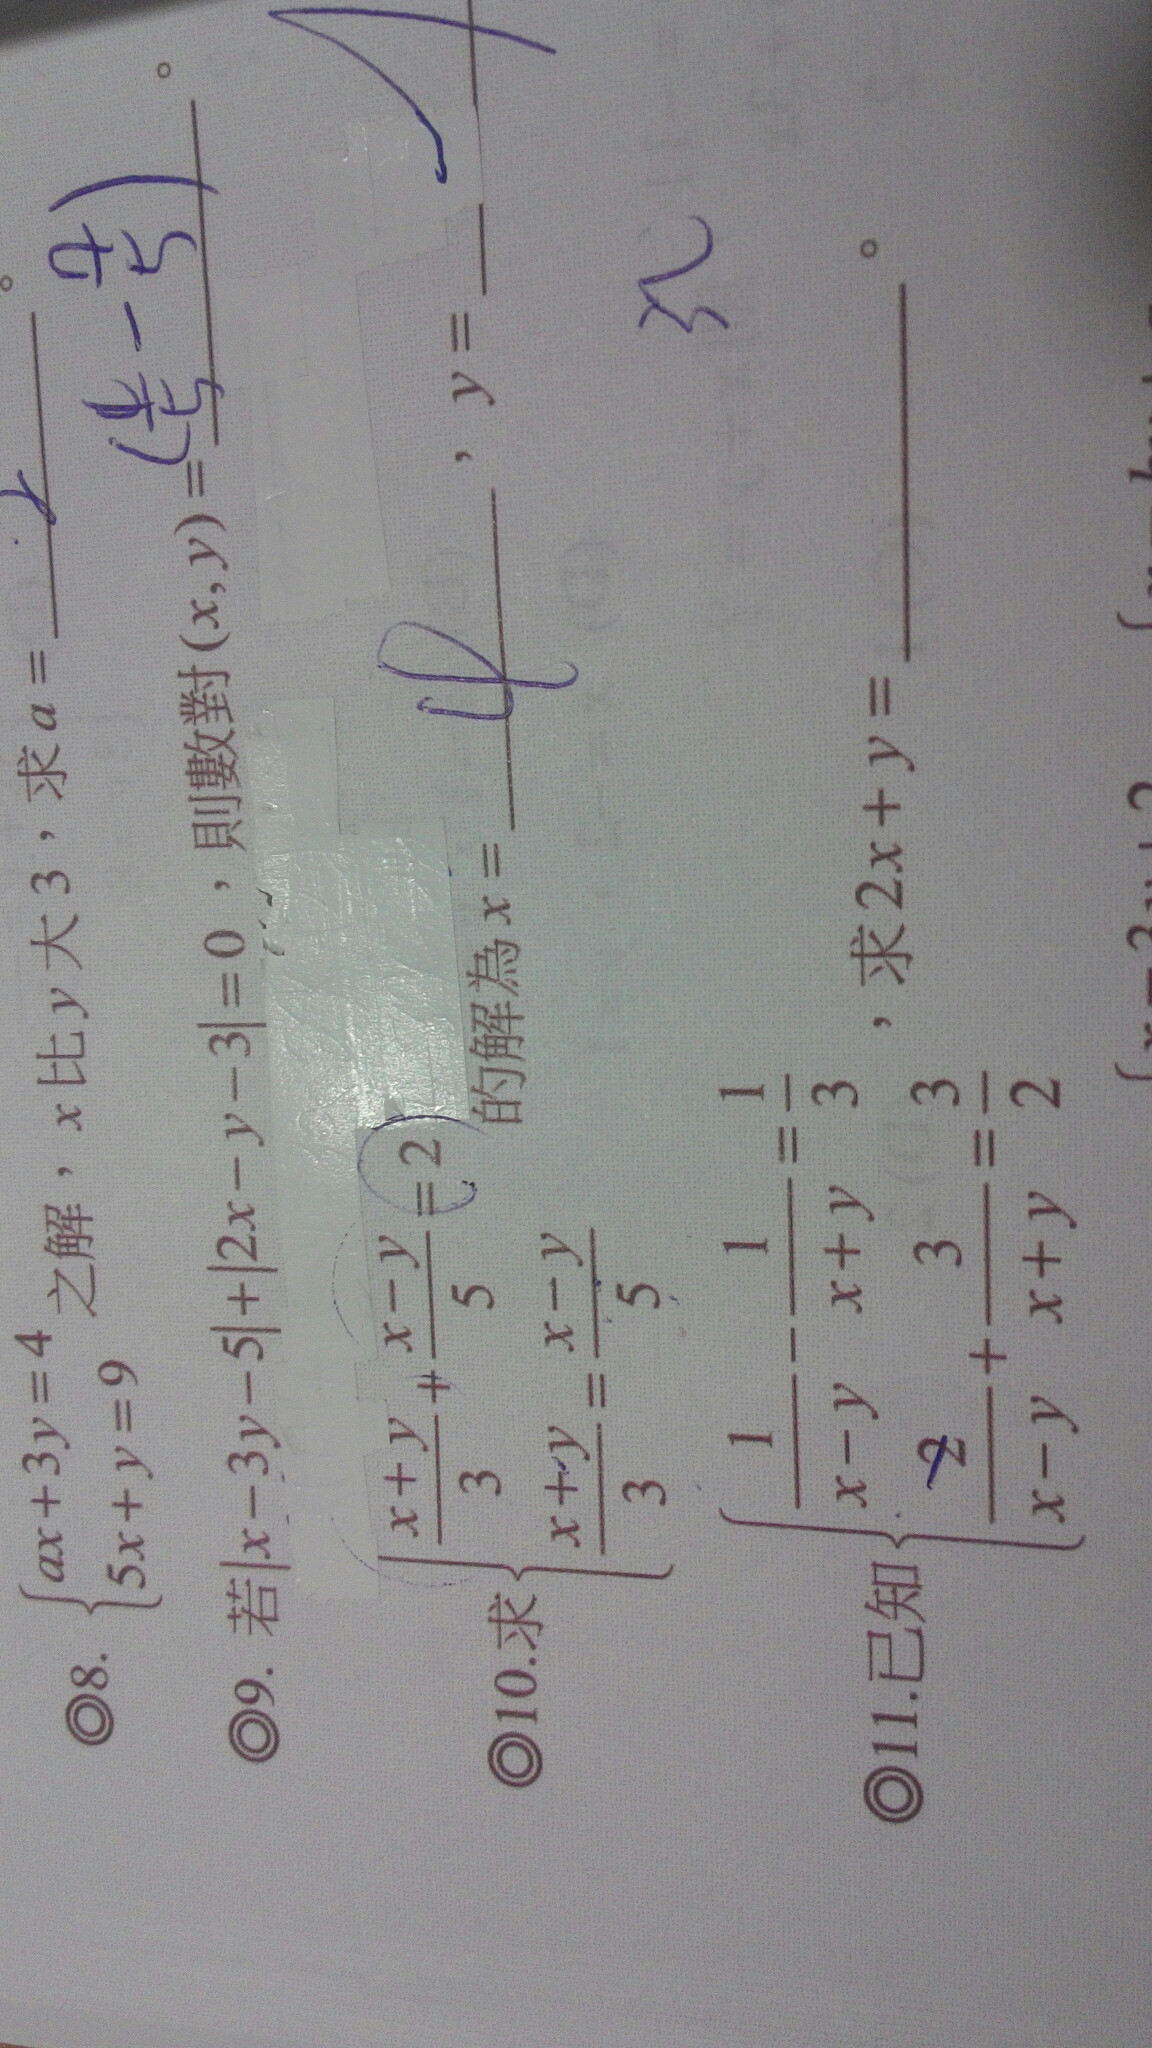 ◎8. {ax+3y=4
5x+y=9 之解，x比y大3，求a=
◎9. 若|x-3y-5|+|2x-y-3|=0，則數對(x,y)=(4/5 -7/5)。
◎10.求{(x+y)/3+(x-y)/5=2
(x+y)/3=(x-y)/5 的解為x=，y=
◎11.已知{1/(x-y)-1/(x+y)=1/3
2/(x-y)+3/(x+y)=3/2，求2x+y=。